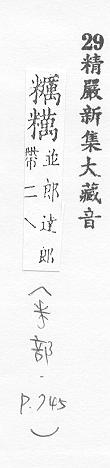 29精嚴新集大藏音
糲
並郎達郎
帶二乀
(米部·P.745)